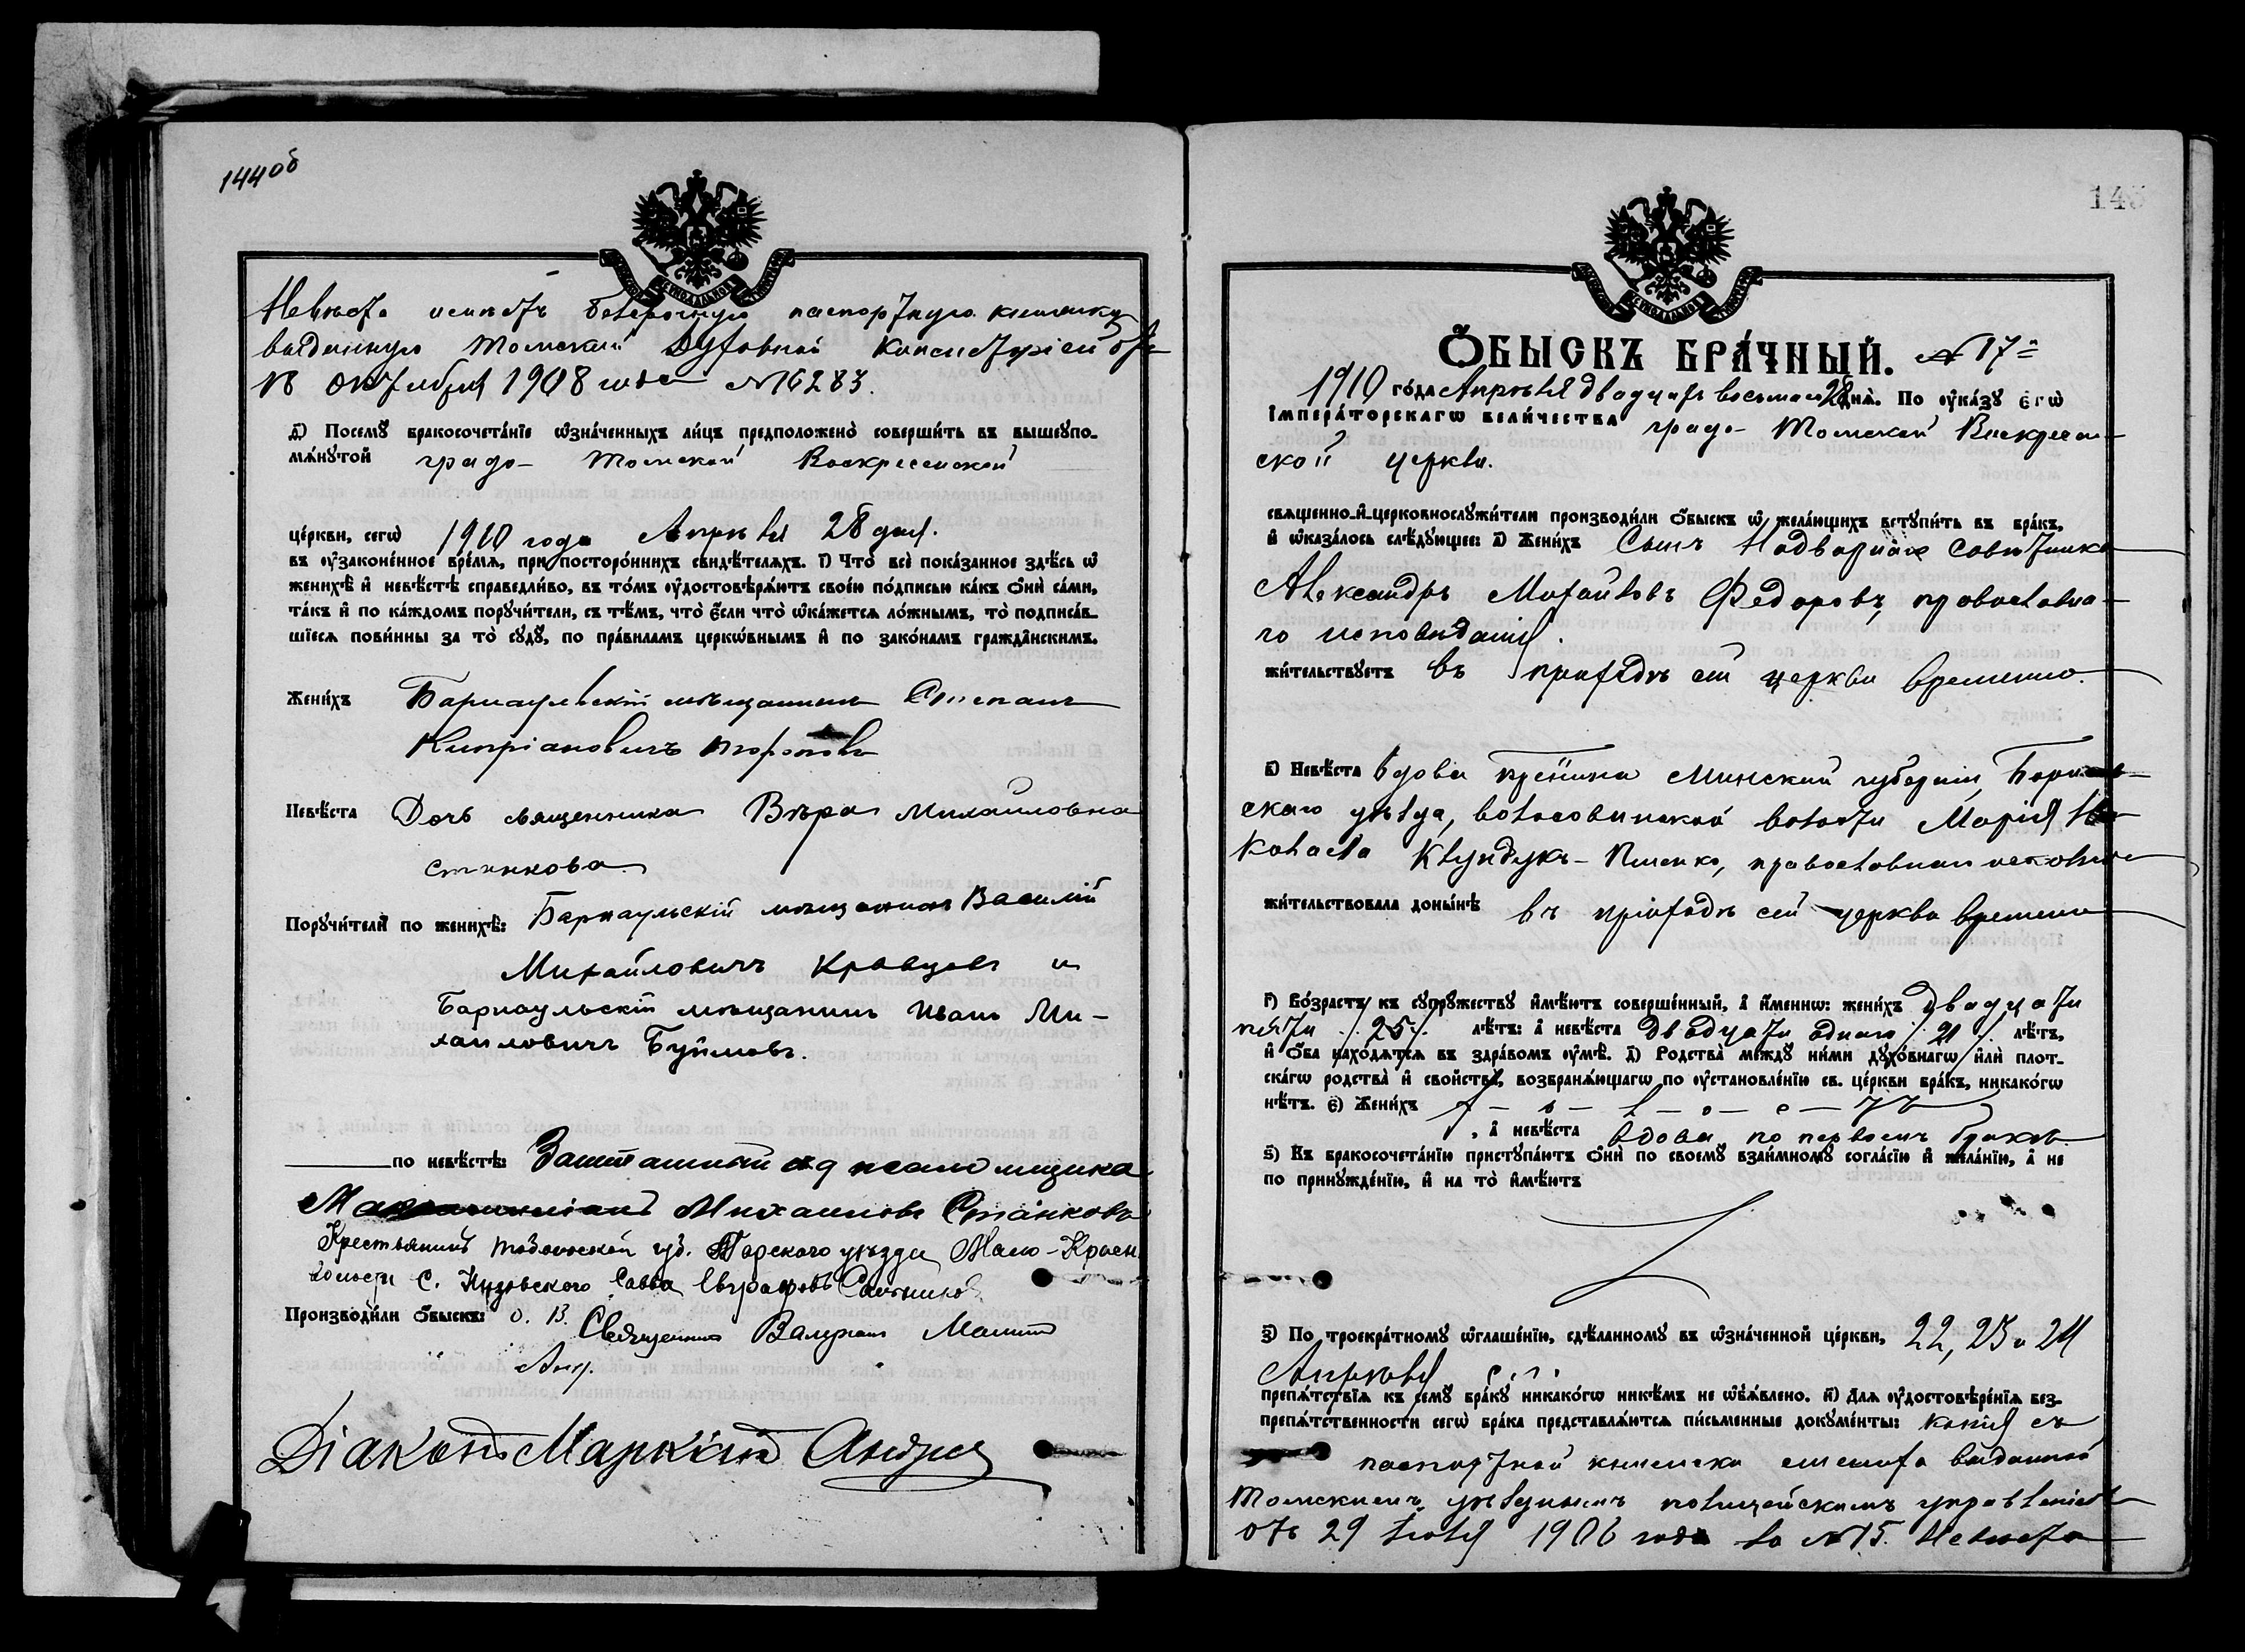 144 об
Невѣста имѣетъ безсрочную паспортную книжку
выданную Томской Духовной Консисторіей отъ
18 октября 1908 года № 16283.
д҃) Посемꙋ̀ бракосочета́нїе ѡ҆зна́ченныхъ ли́цъ предположено̀ соверши́ть въ вышеꙋпо-
мѧ́нꙋтой градо- Томской Воскресенской
це́ркви, сегѡ̀ 1910 года Апрѣля 28 дня.
въ ᲂу҆законе́нное вре́мѧ, при посторо́ннихъ свидѣ́телѧхъ. і҃) Что̀ всѐ пока́занное здѣ́сь ѡ҆
женихѣ̀ и҆ невѣ́стѣ справедли́во, въ то́мъ ᲂу҆достовѣрѧ́ютъ свое́ю по́дписью ка́къ ѻ҆нѝ са́ми,
та́къ и҆ по ка́ждомъ порꙋчи́тели, съ тѣ́мъ, что̀ є҆́сли что̀ ѡ҆ка́жетсѧ ло́жнымъ, то̀ подписа́в-
шїесѧ пови́нны за то̀ сꙋдꙋ̀, по пра́виламъ церкѡ́внымъ и҆ по зако́намъ гражда̑нскимъ.
Жени́хъ Барнаульскій мѣщанинъ Степанъ
Кипріановичъ Тороповъ
Невѣ́ста Дочь священника Вѣра Михайловна
Станкова
Порꙋчи́тели по женихѣ̀: Барнаульскій мѣщанинъ Василій
Михайловичъ Кравцовъ и
Барнаульскій мѣщанинъ Иванъ Ми-
хаиловичъ Буймовъ.
по невѣ́стѣ: Заштатный псаломщика
Михаиловъ Станковъ
Крестьянинъ Тобольской губ. Тарскаго уѣзда Мало-Красн.
волости С. Савва Евграфовъ Сальников
Производи́ли ѻ҆́быскъ: О. В. Священникъ Валеріанъ
Діаконъ Маркіанъ
145
Ѻ҆́БЫСКЪ БРА́ЧНЫЙ. № 17
1910 го́да Апрѣля двадцать восьмаго 28 днѧ̀. По ᲂу҆ка́зꙋ є҆гѡ̀
і҆мпера́торскагѡ вели́чества градо- Томской Воскресен-
ской церкви.
свѧщенно-и҆-церковнослꙋжи́тели производи́ли ѻ҆́быскъ ѡ҆ жела́ющихъ встꙋпи́ть въ бра́къ,
и҆ ѡ҆каза́лось слѣ́дꙋющее: а҃) Жени́хъ Сынъ Надворнаго Совѣтника
Александръ Михайловъ Федоровъ, православна-
го исповѣданія.
жи́тельствꙋетъ въ приходѣ сей церкви временно.
в҃) Невѣ́ста вдова Минской губерніи, Борисов-
скаго уѣзда, волости Марія
православнаго
жи́тельствовала доны́нѣ въ приходѣ сей церкви временно
г҃) Во́зрастъ къ сꙋпрꙋ́жествꙋ и҆мѣ́ютъ соверше́нный, а҆ и҆́меннѡ: жени́хъ двадцати
пяти /. 25 /. лѣ́тъ: а҆ невѣ́ста двадцати одного /. 21 /. лѣ́тъ,
и҆ ѻ҆́ба нахо́дѧтсѧ въ здра́вомъ ᲂу҆мѣ̀. д҃) Родства̀ междꙋ̀ ни́ми дꙋхо́внагѡ и҆лѝ плот-
ска́гѡ родства̀ и҆ сво́йства, возбранѧ́ющагѡ по ᲂу҆становле́нїю св. це́ркви бра́къ, никако́гѡ
нѣ́тъ. є҃) Жени́хъ х — о — л — о — с — тъ
, а҆ невѣ́ста вдова по первомъ бракѣ
ѕ҃) Къ бракосочета́нїю пристꙋпа́ютъ ѻ҆нѝ по своемꙋ̀ взаи́мномꙋ согла́сїю и҆ жела́нїю, а҆ не
по принꙋжде́нїю, и҆ на то̀ и҆мѣ́ютъ
з҃) По троекра́тномꙋ ѡ҆глаше́нїю, сдѣ́ланномꙋ въ ѡ҆зна́ченной це́ркви, 22, 23 и 24
Апрѣля с. г.
препѧ́тствїѧ къ семꙋ̀ бра́кꙋ никако́гѡ никѣ́мъ не ѡ҆б̾ѧ́влено. и҃) Длѧ ᲂу҆достовѣре́нїѧ без-
препѧ́тственности сегѡ̀ бра́ка представлѧ́ютсѧ пи́сьменные докꙋме́нты: копія съ
паспортной книжки жениха выданной
Томскимъ уѣзднымъ полицейскимъ управленіемъ
отъ 29 іюля 1906 года за № 15. Невѣста